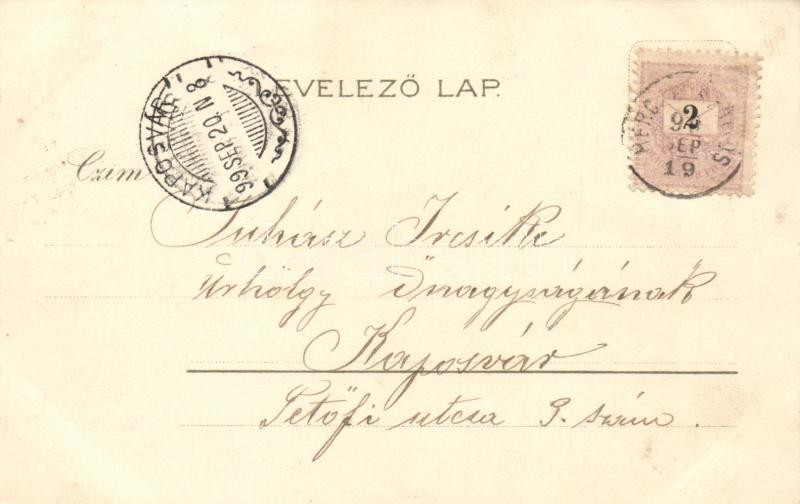 LEVELEZŐ LAP.
KAPOSVÁR
99 SEP 20 N 8
2
99
SEP
19
Czim
Juhász Ircsike
úrhölgy őnagyságának
Kaposvár
Petőfi utcza 9. szám.